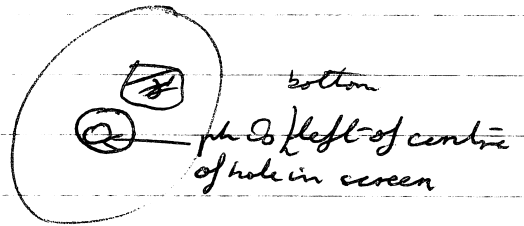 bottom
left of centre
of hole in screen